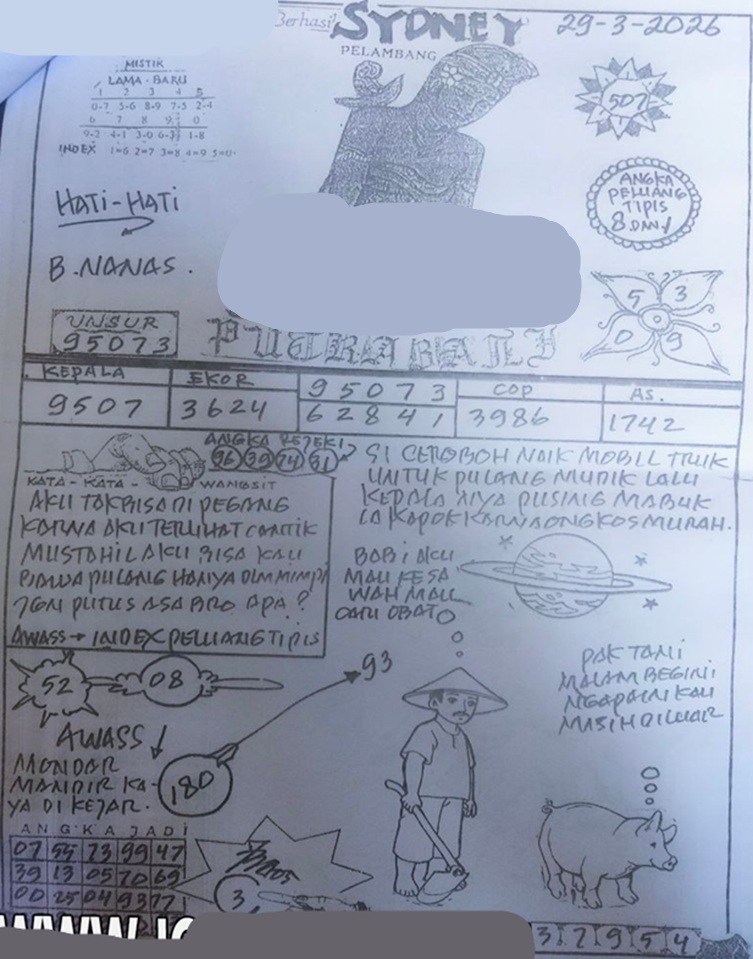 Berhasil SYDNEY 29-3-2026
PELAMBANG
MISTIK
LAMA-BARU
1 2 3 4 5
0-7 5-6 8-9 7-5 2-4
6 7 8 9 0
9-2 4-1 3-0 6-3 1-8
INDEX 1=6 2=7 3=8 4=9 5=0
507
HATI-HATI
ANGKA
PELUANG
TIPIS
8 DAN 1
B.NANAS.
5 3
0 9
UNSUR
95073
PUTRA BALI
KEPALA EKOR 95073 COP AS.
9507 3624 62841 3986 1742
ANGKA REJEKI
96 39 74 31
KATA-KATA- WANGSIT
AKU TAK BISA DI PEGANG
KARNA AKU TERLIHAT CANTIK
MUSTAHIL AKU BISA KAU
BAWA PULANG HANYA DLM MIMPI
JGN PUTUS ASA BRO APA?
AWASS → INDEX PELUANG TIPIS
SI CEROBOH NAIK MOBIL TRUK
UNTUK PULANG MUDIK LALU
KEPALA NYA PUSING MABUK
IA KAPOK KARNA ONGKOS MURAH.
BABI AKU
MAU KE SA
WAH MAU
CARI OBAT
PAK TANI
MALAM BEGINI
NGAPAIN KAU
MASIH DILUAR
52 08
93
AWASS!
MONDAR
MANDIR KA-
YA DI KEJAR.
180
ANGKA JADI
07 55 73 99 47
39 13 05 70 69
00 25 04 93 77
3
37954